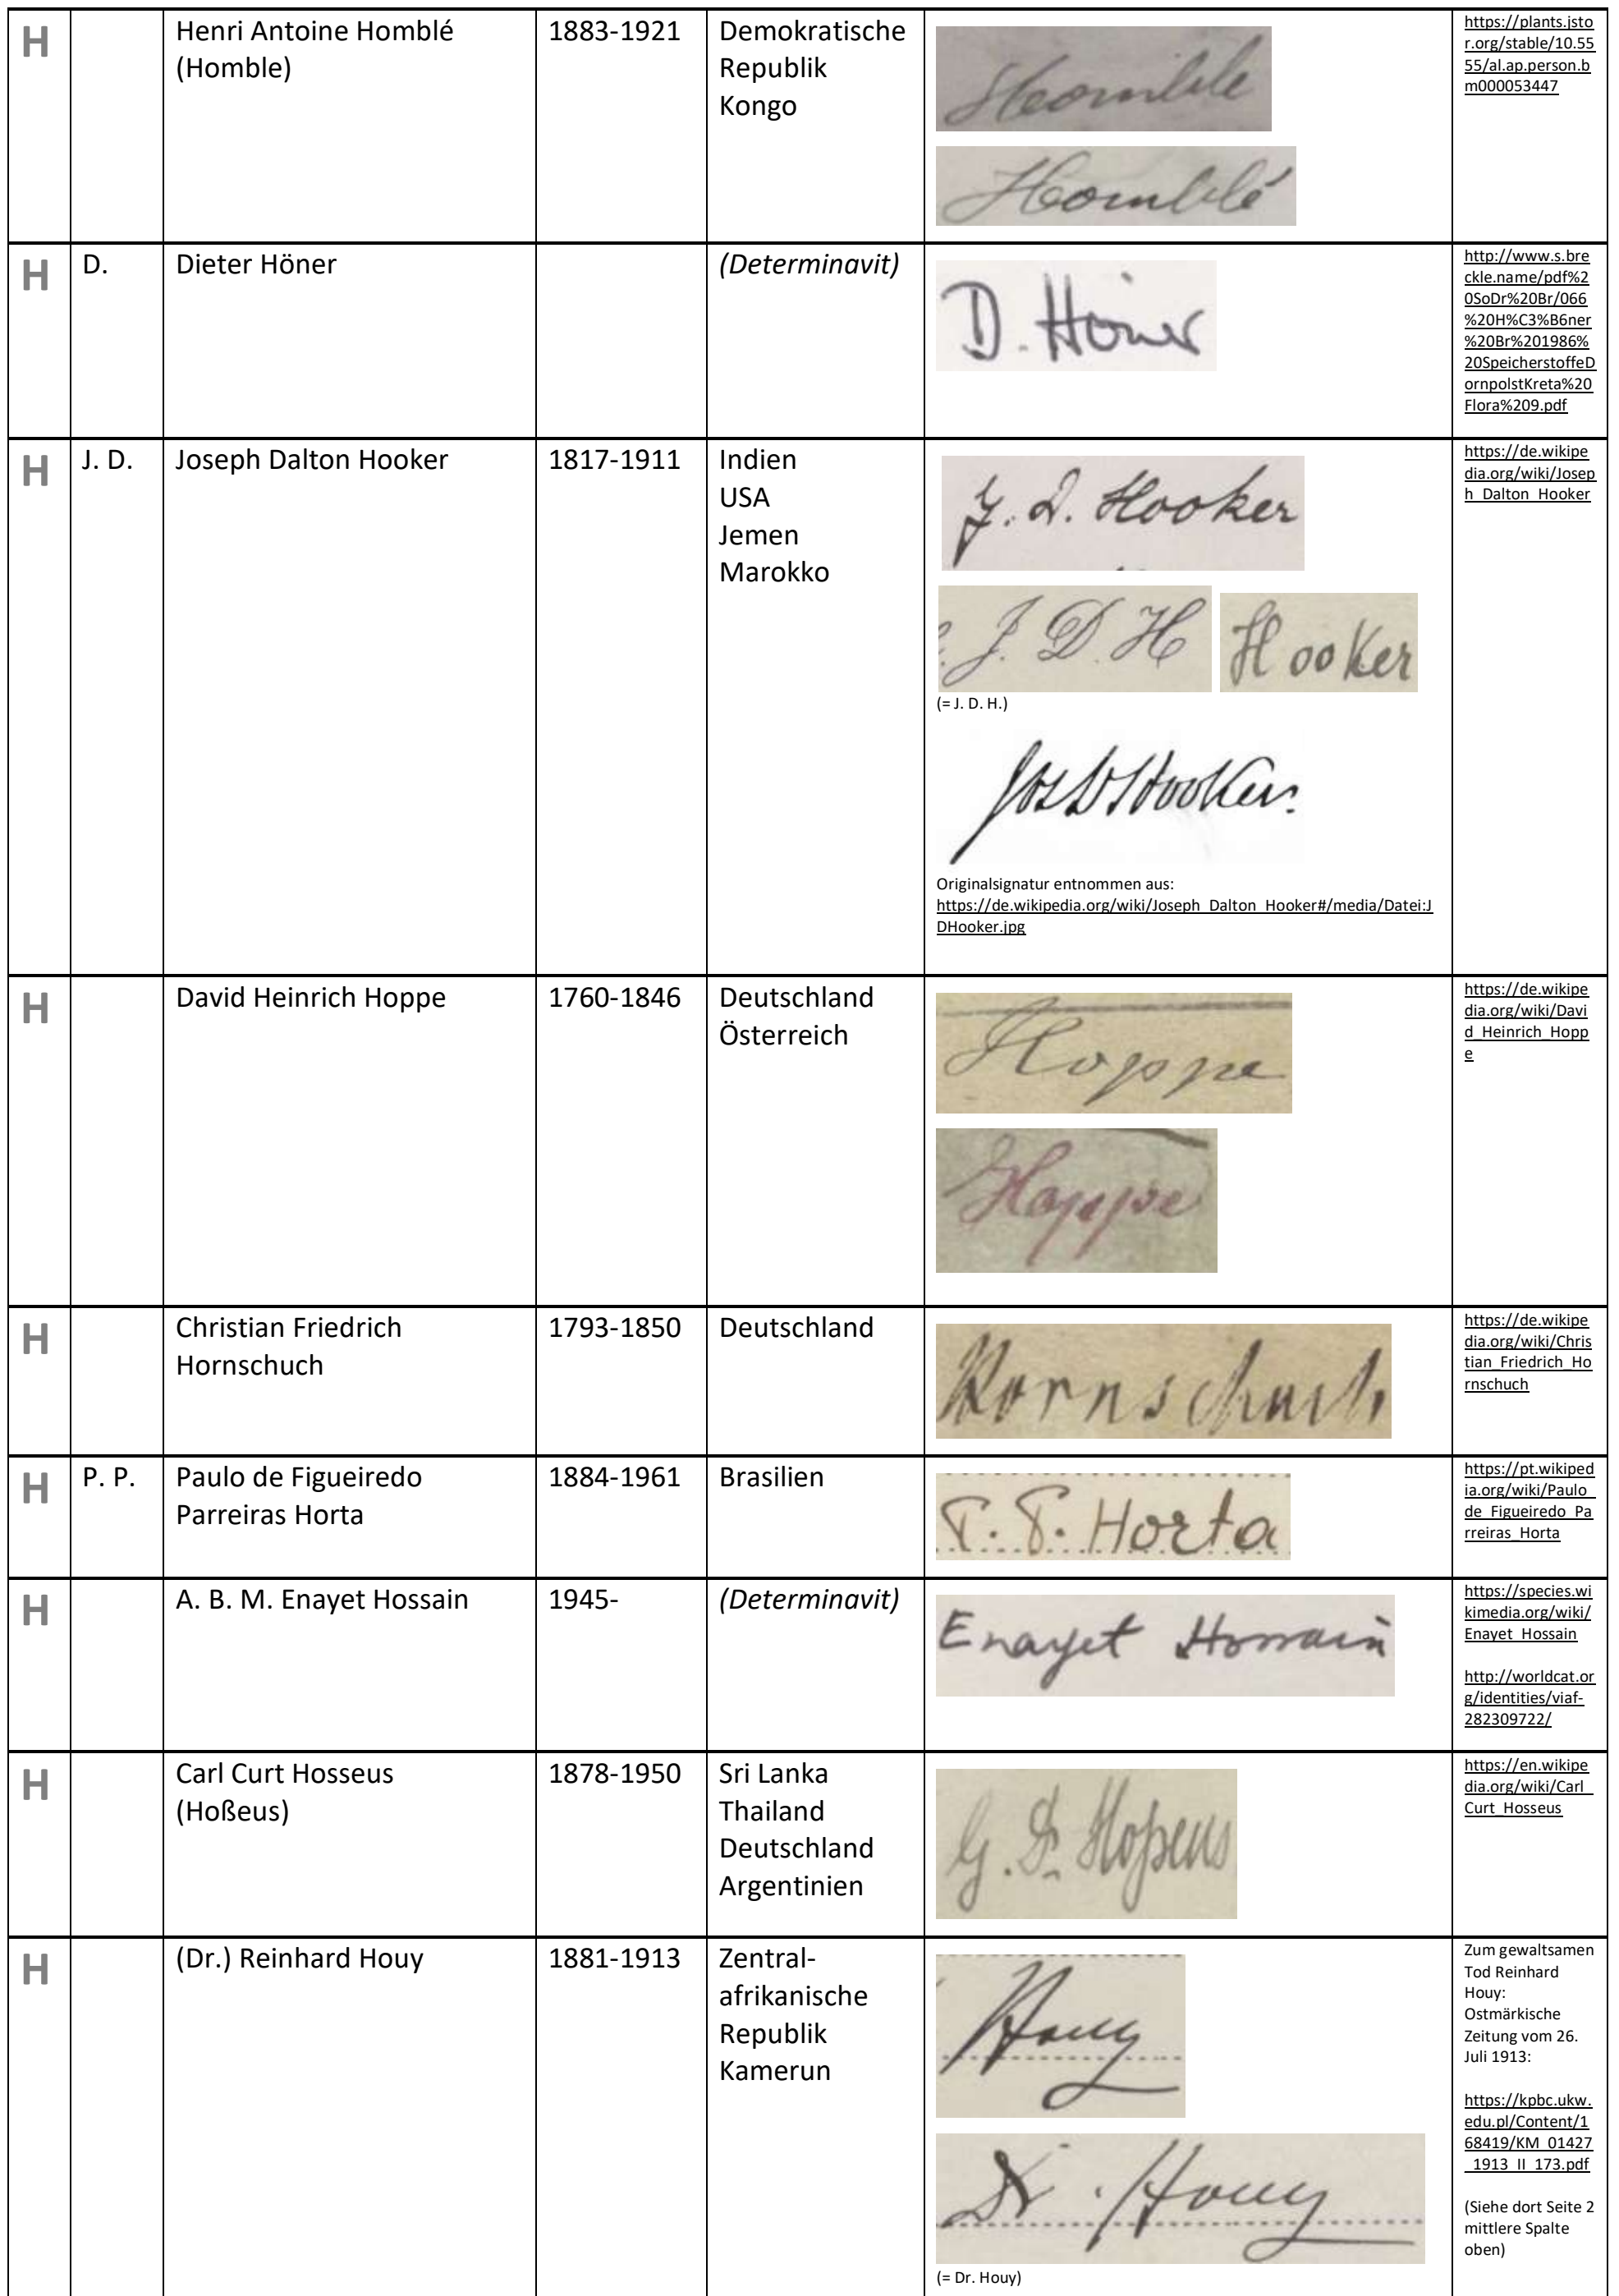 H
Henri Antoine Homblé
(Homble)
1883-1921
Demokratische
Republik
Kongo
Homble
Homblé
https://plants.jsto
r.org/stable/10.55
55/al.ap.person.b
m000053447
H
D.
Dieter Höner
(Determinavit)
D. Höner
http://www.s.bre
ckle.name/pdf%2
0SoDr%20Br/066
%20H%C3%B6ner
%20Br%201986%
20SpeicherstoffeD
ornpolstKreta%20
Flora%209.pdf
H
J. D.
Joseph Dalton Hooker
1817-1911
Indien
USA
Jemen
Marokko
J. D. Hooker
J. D. H
Hooker
(= J. D. H.)
Jos D Hooker.
Originalsignatur entnommen aus:
https://de.wikipedia.org/wiki/Joseph_Dalton_Hooker#/media/Datei:J
DHooker.jpg
https://de.wikipe
dia.org/wiki/Josep
h_Dalton_Hooker
H
David Heinrich Hoppe
1760-1846
Deutschland
Österreich
Hoppe
Hoppe
https://de.wikipe
dia.org/wiki/Davi
d_Heinrich_Hopp
e
H
Christian Friedrich
Hornschuch
1793-1850
Deutschland
Hornschuch
https://de.wikipe
dia.org/wiki/Chris
tian_Friedrich_Ho
rnschuch
H
P. P.
Paulo de Figueiredo
Parreiras Horta
1884-1961
Brasilien
P. P. Horta
https://pt.wikiped
ia.org/wiki/Paulo_
de_Figueiredo_Pa
rreiras_Horta
H
A. B. M. Enayet Hossain
1945-
(Determinavit)
Enayet Hossain
https://species.wi
kimedia.org/wiki/
Enayet_Hossain
http://worldcat.or
g/identities/viaf-
282309722/
H
Carl Curt Hosseus
(Hoßeus)
1878-1950
Sri Lanka
Thailand
Deutschland
Argentinien
Dr. Hoßeus
https://en.wikipe
dia.org/wiki/Carl_
Curt_Hosseus
H
(Dr.) Reinhard Houy
1881-1913
Zentral-
afrikanische
Republik
Kamerun
Houy
Dr. Houy
(= Dr. Houy)
Zum gewaltsamen
Tod Reinhard
Houy:
Ostmärkische
Zeitung vom 26.
Juli 1913:
https://kpbc.ukw.
edu.pl/Content/1
68419/KM_01427
_1913_II_173.pdf
(Siehe dort Seite 2
mittlere Spalte
oben)